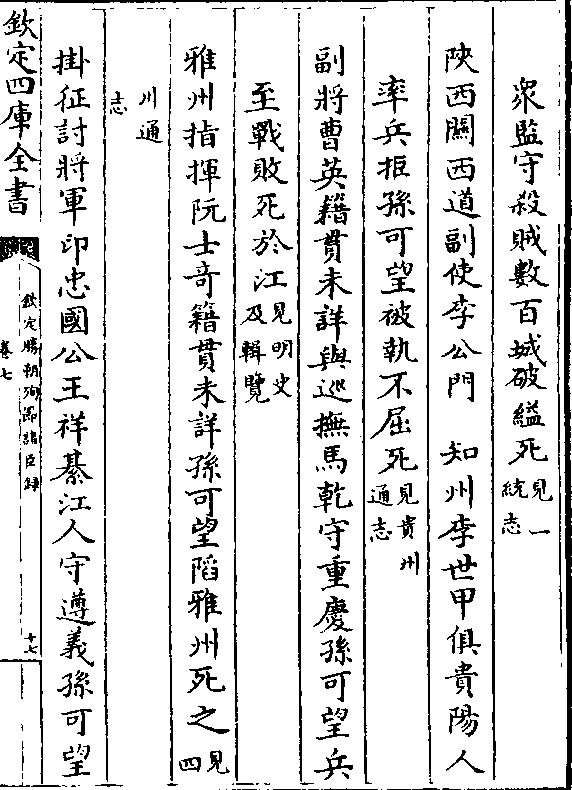 衆監守殺賊數百城破縊死見一統志
陜西關西道副使李公門　知州李世甲俱貴陽人
率兵拒孫可望被執不屈死見貴州通志
副將曹英籍貫未詳與巡撫馬乾守重慶孫可望兵
至戰敗死於江見明史及輯覽
雅州指揮阮士奇籍貫未詳孫可望陷雅州死之見四
川通志
掛征討將軍印忠國公王祥綦江人守遵義孫可望
欽定四庫全書
欽定勝朝殉節諸臣錄
卷七
十七